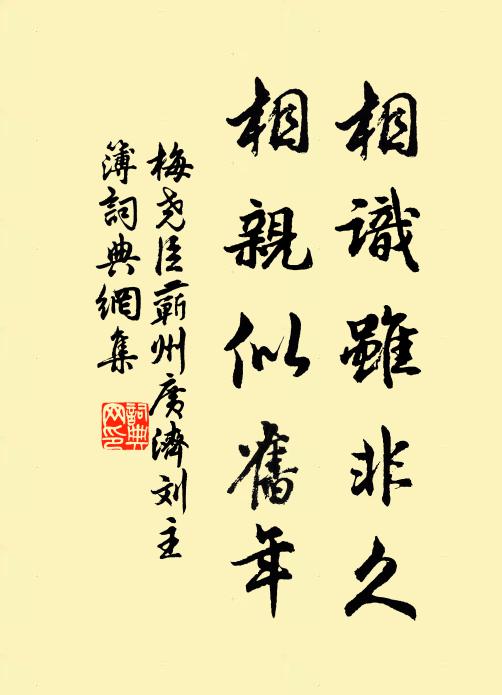 相識雖非久
相親似舊年
梅尧臣蘄州廣濟刘主
簿詞典網集
詞典
网印